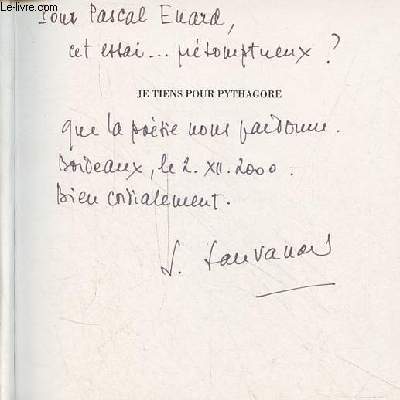 Le-livre.com
Pour Pascal Enard,
cet essai... présomptueux ?
JE TIENS POUR PYTHAGORE
que la poésie nous pardonne.
Bordeaux, le 2. XII. 2000.
Bien cordialement.